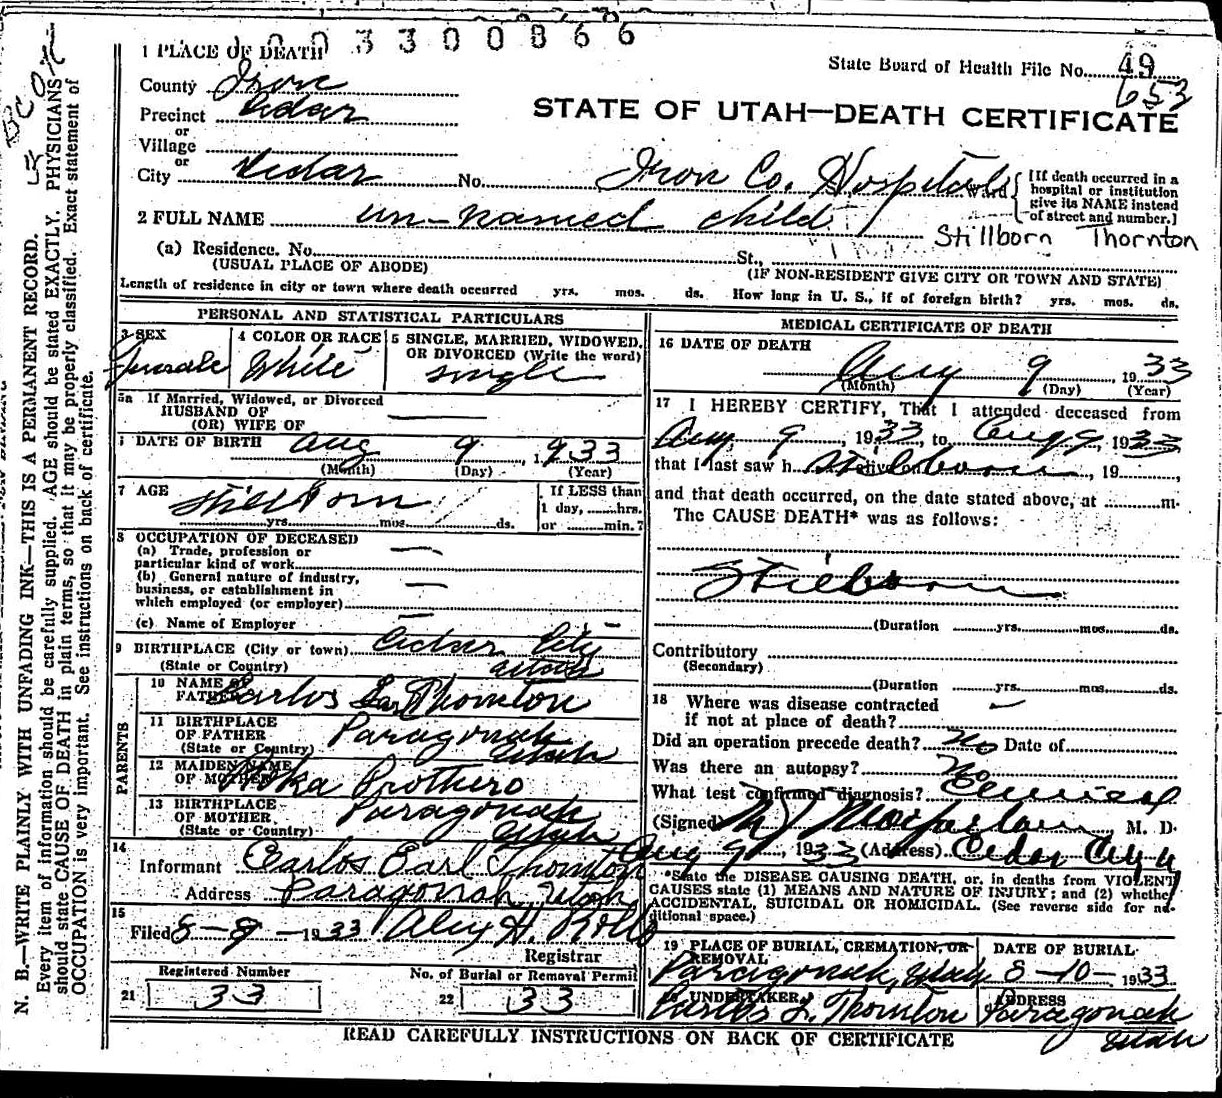 003300866
1 PLACE OF DEATH
State Board of Health File No. 49
653
County Iron
Precinct Cedar
STATE OF UTAH—DEATH CERTIFICATE
or
Village
or
City Cedar No. Iron Co. Hospital Ward
[If death occurred in a
hospital or institution
give its NAME instead
of street and number.]
2 FULL NAME un-named child
Stillborn Thornton
(a) Residence. No. St.,
(USUAL PLACE OF ABODE) (IF NON-RESIDENT GIVE CITY OR TOWN AND STATE)
Length of residence in city or town where death occurred yrs. mos. ds. How long in U. S., if of foreign birth? yrs. mos. ds.
PERSONAL AND STATISTICAL PARTICULARS
3 SEX
Female
4 COLOR OR RACE
White
5 SINGLE, MARRIED, WIDOWED,
OR DIVORCED (Write the word)
single
5a If Married, Widowed, or Divorced
HUSBAND OF
(OR) WIFE OF
DATE OF BIRTH Aug 9, 1933
(Month) (Day) (Year)
7 AGE
Stillborn
yrs. mos. ds.
If LESS than
1 day, hrs.
or min.?
8 OCCUPATION OF DECEASED
(a) Trade, profession or
particular kind of work
(b) General nature of industry,
business, or establishment in
which employed (or employer)
(c) Name of Employer
9 BIRTHPLACE (City or town) Cedar City
(State or Country) Utah
PARENTS
10 NAME OF
FATHER Carlos Earl Thornton
11 BIRTHPLACE
OF FATHER Paragonah
(State or Country) Utah
12 MAIDEN NAME
OF MOTHER Prothero
13 BIRTHPLACE
OF MOTHER Paragonah
(State or Country) Utah
14
Informant Carlos Earl Thornton
Address Paragonah Utah
15
Filed 8-9-1933 Alex H. Rollo
Registrar
Registered Number
21 33
No. of Burial or Removal Permit
22 33
MEDICAL CERTIFICATE OF DEATH
16 DATE OF DEATH
Aug 9, 1933
(Month) (Day) (Year)
17 I HEREBY CERTIFY, That I attended deceased from
Aug 9, 1933, to Aug 9, 1933
that I last saw h alive on Stillborn, 19
and that death occurred, on the date stated above, at m.
The CAUSE DEATH* was as follows:
Stillborn
(Duration yrs. mos. ds.
Contributory
(Secondary)
(Duration yrs. mos. ds.
18 Where was disease contracted
if not at place of death?
Did an operation precede death? No Date of
Was there an autopsy? No
What test confirmed diagnosis? Clinical
(Signed) M J Macfarlane, M. D.
Aug 9, 1933 (Address) Cedar City U
*State the DISEASE CAUSING DEATH, or, in deaths from VIOLENT
CAUSES state (1) MEANS AND NATURE OF INJURY; and (2) whether
ACCIDENTAL, SUICIDAL OR HOMICIDAL. (See reverse side for ad-
ditional space.)
19 PLACE OF BURIAL, CREMATION, OR
REMOVAL
Paragonah, Utah
DATE OF BURIAL
8-10-1933
UNDERTAKER
Carlos L. Thornton
ADDRESS
Paragonah
Utah
READ CAREFULLY INSTRUCTIONS ON BACK OF CERTIFICATE
N. B.—WRITE PLAINLY WITH UNFADING INK—THIS IS A PERMANENT RECORD.
Every item of information should be carefully supplied. AGE should be stated EXACTLY. PHYSICIANS
should state CAUSE OF DEATH in plain terms, so that it may be properly classified. Exact statement of
OCCUPATION is very important. See instructions on back of certificate.